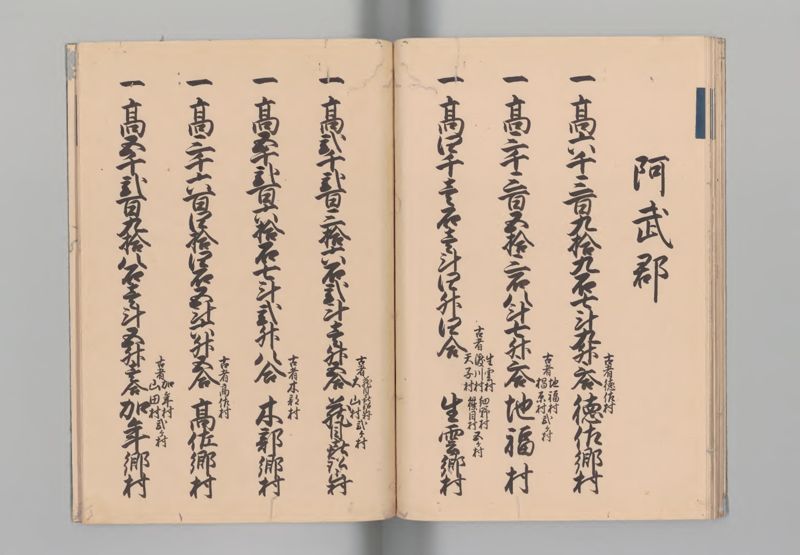 阿武郡
一高六千三百九拾九石七斗
古者徳佐村
徳佐郷村
一高三千三百五拾三石八斗七升六合
古者地福村
地福村
一高四千壱石壱斗四升四合
古者生雲村 細野村
渡川村 篠目村 五ヶ村
天子村
生雲郷村
一高弐千弐百三拾六石弐斗壱升五合
古者
山村 弐ヶ村
一高五千弐百六拾石七斗弐升八合
古者木部村
木部郷村
一高三千六百四拾四石五斗六升五合
古者高佐村
高佐郷村
一高五千弐百九拾八石壱斗五升壱合
古者加年村 弐ヶ村
山田村
加年郷村